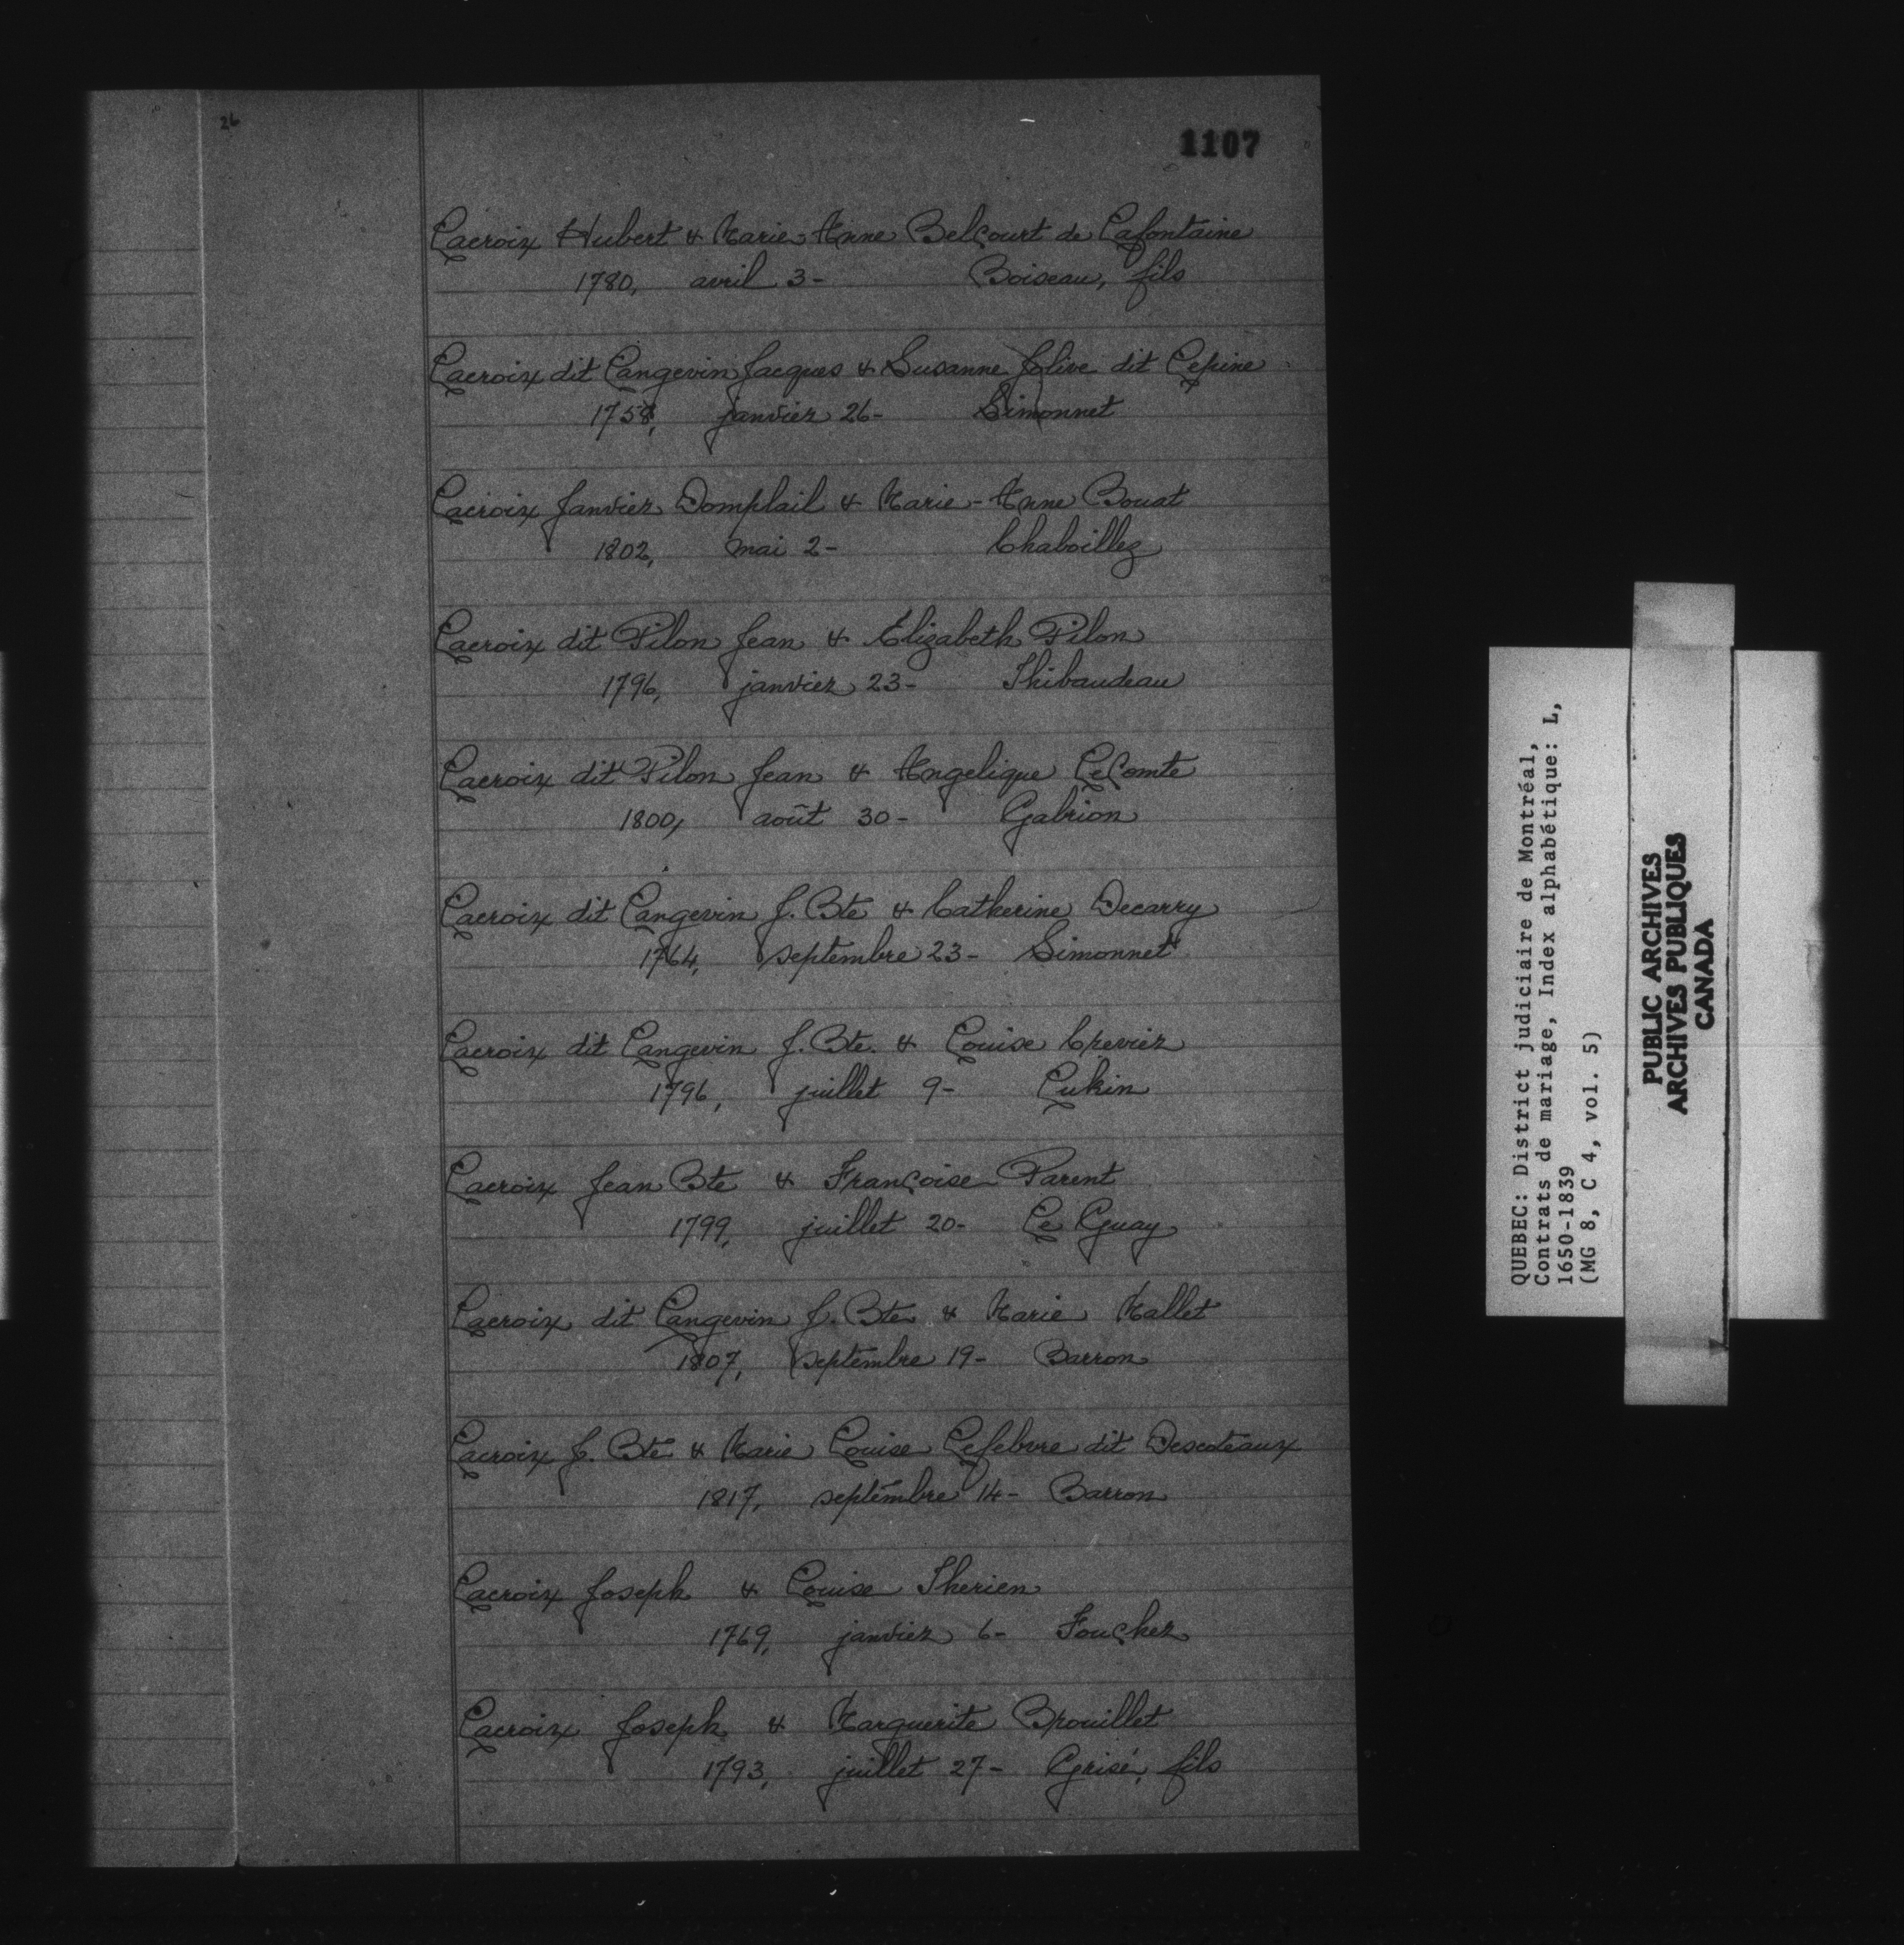 26
1107
Lacroix Hubert & Marie Anne Belcourt de Lafontaine
1780, avril 3- Boiseau, fils
Lacroix dit Langevin Jacques & Susanne Jolive dit Lepine
1758, janvier 26- Simonnet
Lacroix Janvier Domplail & Marie-Anne Bouat
1802, mai 2- Chaboillez
Lacroix dit Pilon Jean & Elizabeth Pilon
1796, janvier 23- Thibaudeau
Lacroix dit Pilon Jean & Angelique LeComte
1800, août 30- Gabrion
Lacroix dit Langevin J. Bte & Catherine Decarry
1764, septembre 23- Simonnet
Lacroix dit Langevin J. Bte. & Louise Crevier
1796, juillet 9- Lukin
Lacroix Jean Bte & Françoise Parent
1799, juillet 20- Le Guay
Lacroix dit Langevin J. Bte & Marie Mallet
1807, septembre 19- Barron
Lacroix J. Bte & Marie Louise Lefebvre dit Descoteaux
1817, septembre 14- Barron
Lacroix Joseph & Louise Therien
1769, janvier 6- Foucher
Lacroix Joseph & Marguerite Brouillet
1793, juillet 27- Grisé, fils
QUEBEC: District judiciaire de Montréal,
Contrats de mariage, Index alphabétique: L,
1650-1839
(MG 8, C 4, vol. 5)
PUBLIC ARCHIVES
ARCHIVES PUBLIQUES
CANADA